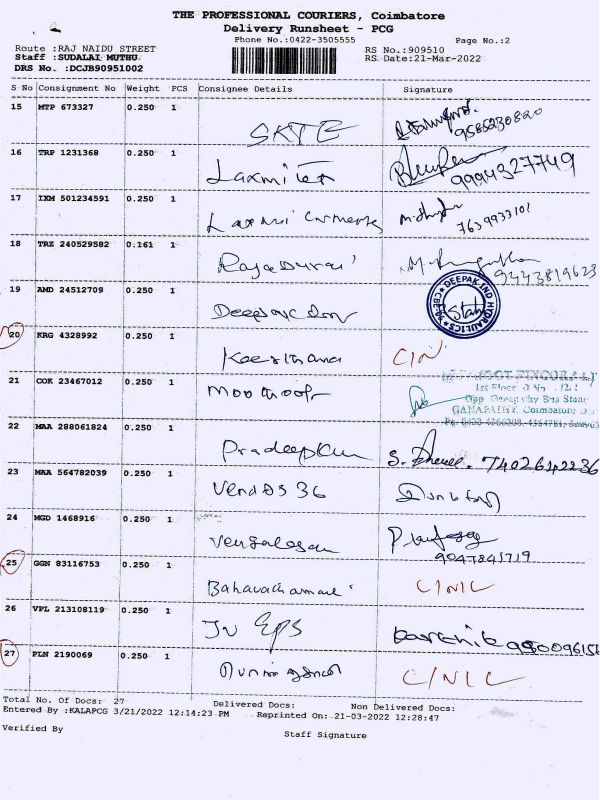 THE PROFESSIONAL COURIERS, Coimbatore
Delivery Runsheet - PCG
Phone No.:0422-3505555 Page No.:2
Route :RAJ NAIDU STREET RS No.:909510
Staff :SUDALAI MUTHU RS Date:21-Mar-2022
DRS No. :DCJB90951002
S No Consignment No Weight PCS Consignee Details Signature
15 MTP 673327 0.250 1 SKTE
9585230820
16 TRP 1231368 0.250 1 Laxmi
9994327749
17 IXM 501234591 0.250 1 Laxmi Garments
7639933101
18 TRZ 240529582 0.161 1 Rajadurai
9443819623
19 AMD 24512709 0.250 1 Deepak
DEEPAK IND HYDRAULICS
20 KRG 4328992 0.250 1 Keerthana C/N
21 COK 23467012 0.250 1 Moothoot
1st Floor
Opp. Bus Stand
GANAPATHY, Coimbatore
22 MAA 288061824 0.250 1 Pradeep Kum 7402642236
23 MAA 564782039 0.250 1 Vendos 36
24 MGD 1468916 0.250 1 Vengalesan
9047845719
25 GGN 83116753 0.250 1 C/NIL
26 VPL 213108119 0.250 1 JV EPS
27 PLN 2190069 0.250 1 C/NIL
Total No. Of Docs: 27 Delivered Docs: Non Delivered Docs:
Entered By :KALAPCG 3/21/2022 12:14:23 PM Reprinted On: 21-03-2022 12:28:47
Verified By Staff Signature